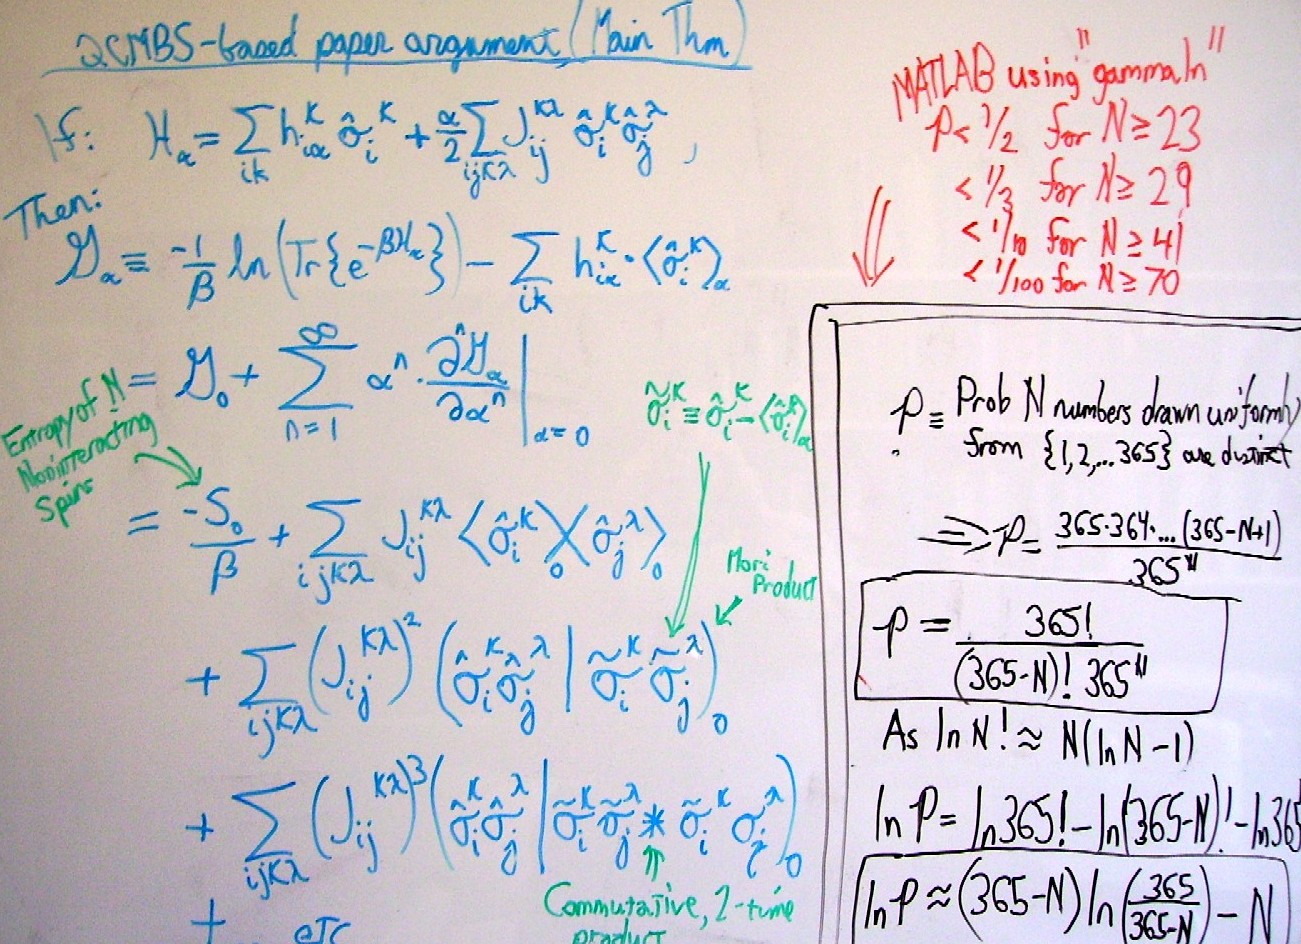 QCMBS-based paper argument (Main Thm)
If: H_α = Σ_{iκ} h_{iα}^κ σ̂_i^κ + α/2 Σ_{ijκλ} J_{ij}^{κλ} σ̂_i^κ σ̂_j^λ ,
Then:
G_α ≡ -1/β ln(Tr{e^{-βH_α}}) - Σ_{iκ} h_{iα}^κ · ⟨σ̂_i^κ⟩_α
= G_0 + Σ_{n=1}^∞ α^n · ∂^n G_α / ∂α^n |_{α=0}
Entropy of N
Noninteracting
Spins
σ̃_i^κ ≡ σ̂_i^κ - ⟨σ̂_i^κ⟩_α
= -S_0/β + Σ_{ijκλ} J_{ij}^{κλ} ⟨σ̂_i^κ⟩_0 ⟨σ̂_j^λ⟩_0
Mori
Product
+ Σ_{ijκλ} (J_{ij}^{κλ})^2 (σ̂_i^κ σ̂_j^λ | σ̃_i^κ σ̃_j^λ)_0
+ Σ_{ijκλ} (J_{ij}^{κλ})^3 (σ̂_i^κ σ̂_j^λ | σ̃_i^κ σ̃_j^λ * σ̃_i^κ σ_j^λ)_0
Commutative, 2-time
product
+ ... etc
MATLAB using "gammaln"
P < 1/2 for N ≥ 23
< 1/3 for N ≥ 29
< 1/10 for N ≥ 41
< 1/100 for N ≥ 70
P ≡ Prob N numbers drawn uniformly
from {1,2,...365} are distinct
⇒ P = 365·364·...(365-N+1) / 365^N
P = 365! / (365-N)! 365^N
As ln N! ≈ N(ln N - 1)
ln P = ln 365! - ln(365-N)! - ln 365
ln P ≈ (365-N) ln(365/(365-N)) - N